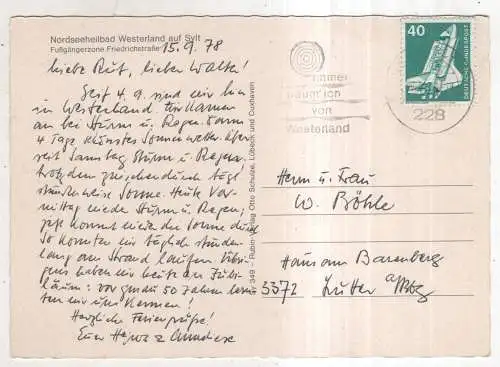 Nordseeheilbad Westerland auf Sylt
Fußgängerzone Friedrichstraße
15.9.78
Liebe Rut, lieber Walter!
Seit 4.9. sind wir hier
in Westerland. Wir kamen
an bei Sturm u. Regen. Dann
4 Tage schönstes Sonnenwetter. Aber
seit Samstag Sturm u. Regen.
Trotzdem zwischendurch tägl.
stundenweise Sonne. Heute Vor-
mittag wieder Sturm u. Regen,
jetzt kommt wieder die Sonne durch
So konnten wir täglich stunden-
lang am Strand laufen. Übri-
gens haben wir heute ein Jubi-
läum: vor genau 50 Jahren lern-
ten wir uns kennen!
Herzliche Feriengrüße!
Eure Heinz &
349 - Rubin- Otto Schulze, Lübeck und Cuxhaven
immer
von
Westerland
40
DEUTSCHE BUNDESPOST
228
Herrn u. Frau
W. Böhle
Haus am Barenberg
3372 Lutter a/Bbg